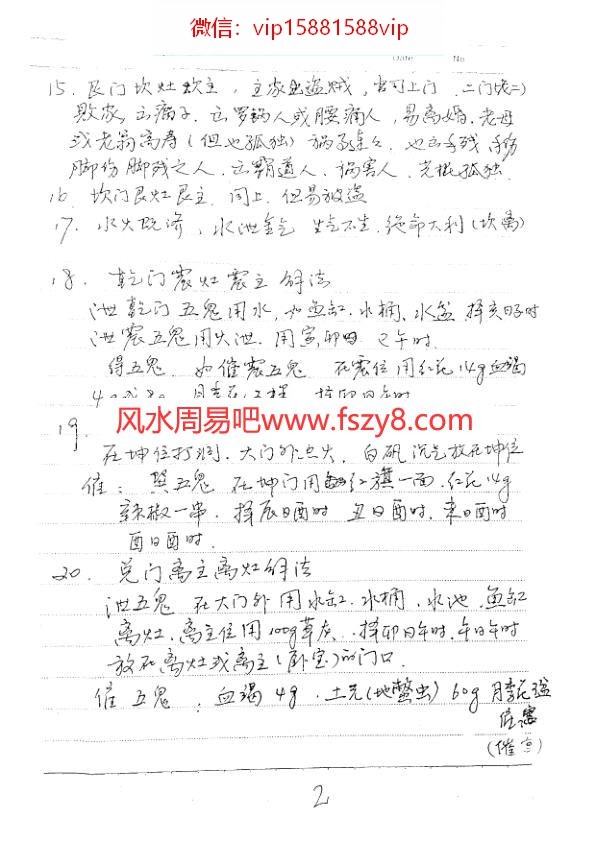 微信：vip15881588vip
Date No
15. 艮门坎灶坎主，主家出盗贼，官司上门
败家，出瘸子，出罗锅人或腰痛人，易离婚，老母
或老翁高寿（但也孤独）祸
脚伤脚残之人，出霸道人，祸害人，光棍孤独
16. 坎门艮灶艮主，同上，但易被盗
17. 水火既济，水泄金气 生气不生，绝命大利（坎离）
18. 乾门震灶震主解法
泄乾门五鬼用水，如鱼缸、水桶、水盆，择亥日子时
泄震五鬼用火泄，用寅、卯日巳午时.
得五鬼，如催震五鬼，在震位用红花14g血竭
19.
在坤位打洞，大门外点火，白矾沉 放在坤位
催：巽五鬼 在坤门用红旗一面，红花14g
辣椒一串，择辰日酉时 丑日酉时，未日酉时
酉日酉时.
20. 兑门离主离灶解法
泄五鬼 在大门外用水缸、水桶、水池、鱼缸
离灶、离主位用100g草灰、择卯日午时、午日午时
放在离灶或离主（卧室）的门口.
催五鬼，血竭4g、土元（地鳖虫）60g 月季花
（催官）
风水周易吧www.fszy8.com
2